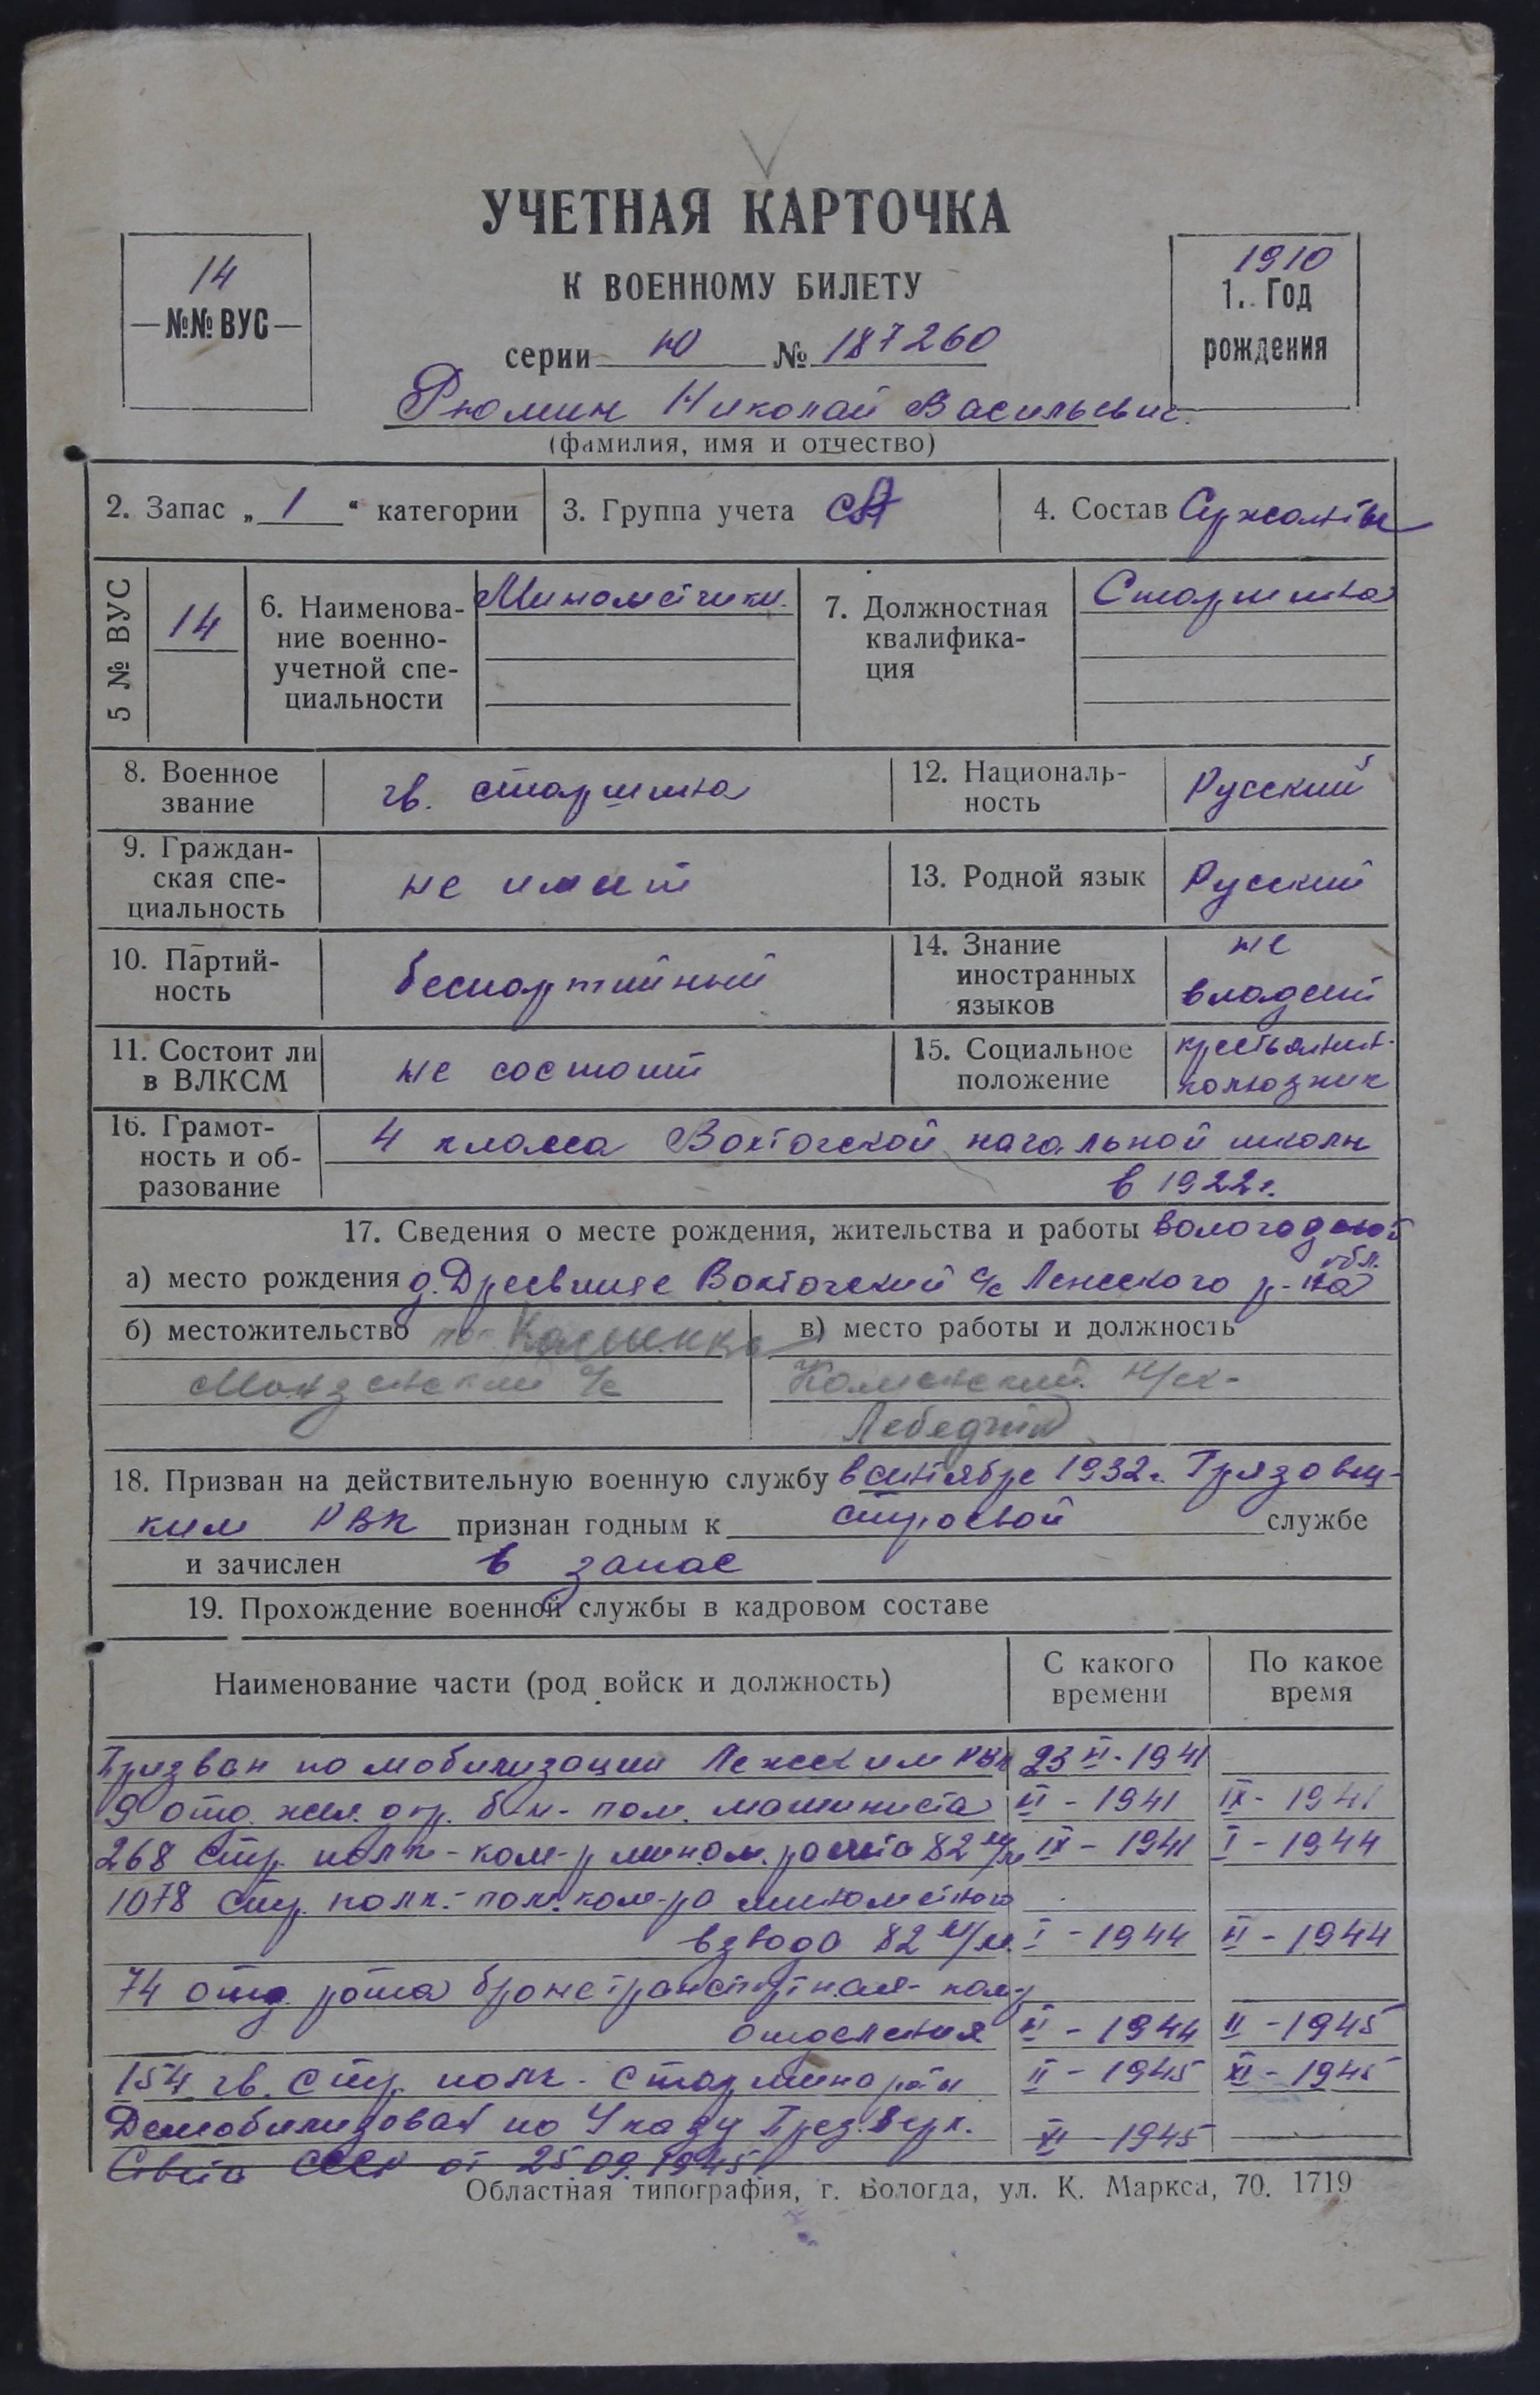 УЧЕТНАЯ КАРТОЧКА
К ВОЕННОМУ БИЛЕТУ
14
№№ ВУС
1910
1. Год
рождения
серии Ю № 187260
Рюмин Николай Васильевич.
(фамилия, имя и отчество)
2. Запас „ 1 “ категории
3. Группа учета СА
4. Состав Сержанты
5 № ВУС
14
6. Наименова-
ние военно-
учетной спе-
циальности
Минометчики.
7. Должностная
квалифика-
ция
Старшина
8. Военное
звание
гв. старшина
12. Националь-
ность
Русский
9. Граждан-
ская спе-
циальность
не имеет
13. Родной язык
Русский
10. Партий-
ность
беспартийный
14. Знание
иностранных
языков
не
владеет
11. Состоит ли
в ВЛКСМ
не состоит
15. Социальное
положение
крестьянин-
колхозник
16. Грамот-
ность и об-
разование
4 класса Вохтогской начальной школы
в 1922г.
17. Сведения о месте рождения, жительства и работы Вологодской
обл.
а) место рождения д. Вохтогский с/с Лежского р-на
б) местожительство
с/с
в) место работы и должность
18. Призван на действительную военную службу в сентябре 1932г. Грязовец-
ким РВК признан годным к строевой службе
и зачислен в запас
19. Прохождение военной службы в кадровом составе
Наименование части (род войск и должность)
С какого
времени
По какое
время
Призван по мобилизации Лежским РВК 23 VI-1941
9 отд. жел. дор. б-н - пом. машиниста VI - 1941 IX - 1941
268 стр. полк - ком-р мином. расчета 82 м/м IX - 1941 I - 1944
1078 стр. полк - пом. ком-ра минометного
взвода 82 м/м. I - 1944 VI - 1944
74 отд. рота бронетранспортная - ком-р
отделения VI - 1944 II - 1945
154 гв. стр. полк - старшина роты II - 1945 XI - 1945
Демобилизован по Указу През. Верх. XI - 1945
Совета СССР от 25.09.1945г.
Областная типография, г. Вологда, ул. К. Маркса, 70. 1719